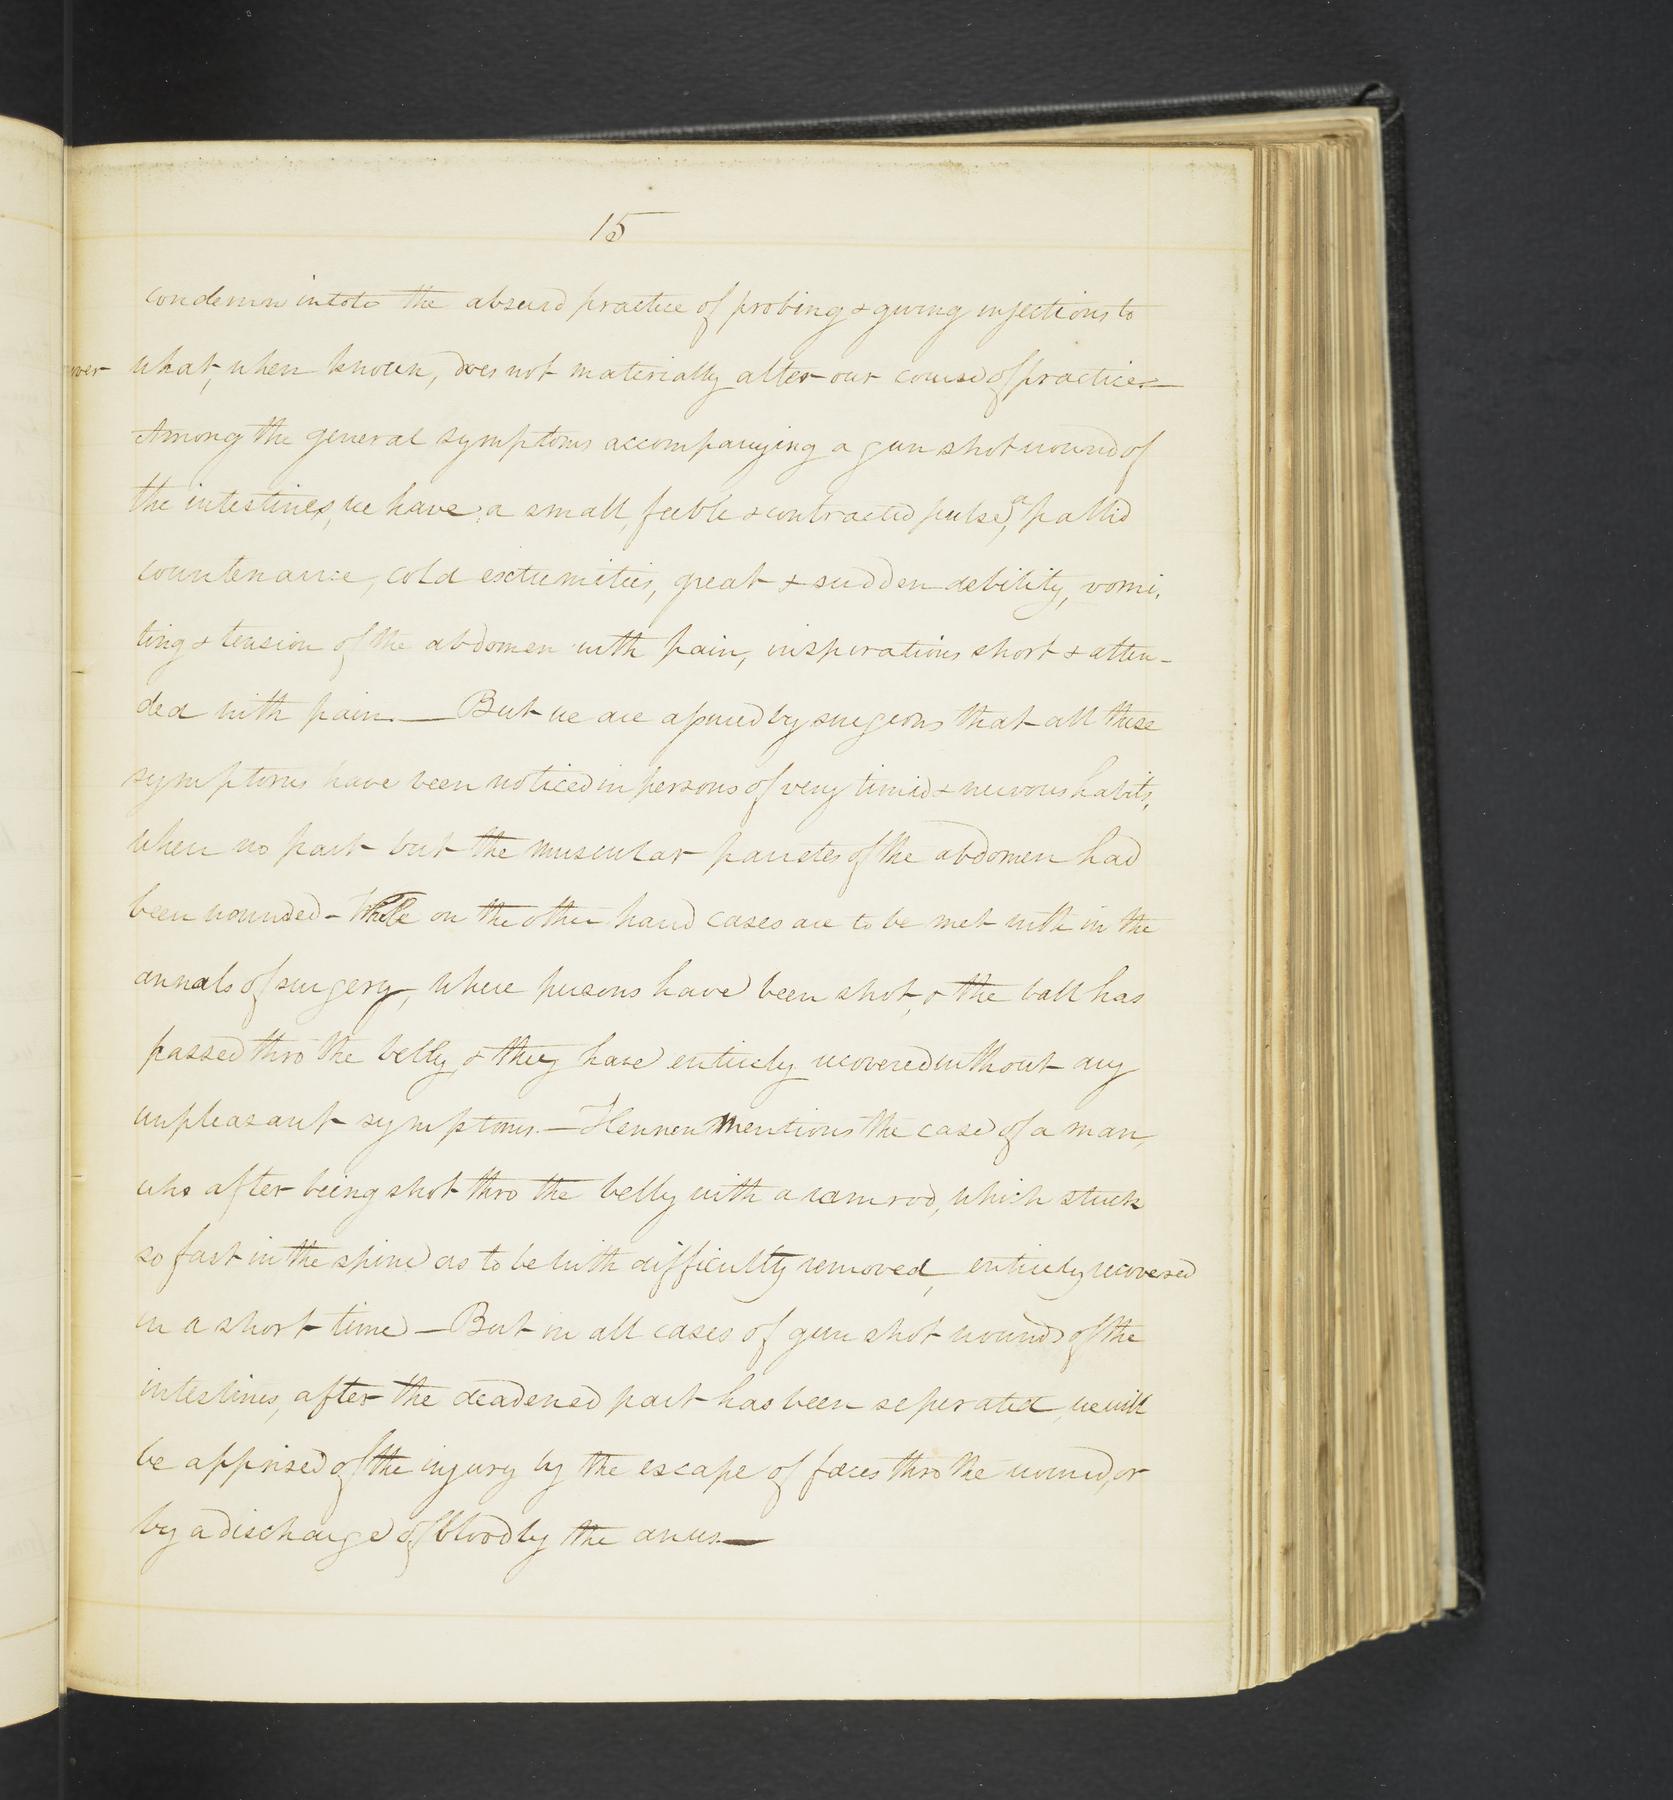 15
condemn in toto the absurd practice of probing & giving injections to
what, when known, does not materially alter our course of practice. —
Among the general symptoms accompanying a gun shot wound of
the intestines, we have, a small, feeble & contracted pulse, a pallid
countenance, cold extremities, great & sudden debility, vomi,
ting & tension of the abdomen with pain, inspirations short & atten-
ded with pain. — But we are assured by surgeons that all these
symptoms have been noticed in persons of very timid & nervous habits,
when no part but the muscular parietes of the abdomen had
been wounded - While on the other hand cases are to be met with in the
annals of surgery, where persons have been shot, & the ball has
passed thro the belly, & they have entirely recovered without any
unpleasant symptoms. — Hennen mentions the case of a man,
who after being shot thro the belly with a ramrod, which stuck
so fast in the spine as to be with difficulty removed, entirely recovered
in a short time — But in all cases of gun shot wounds of the
intestines, after the deadened part has been seperated, we will
be apprised of the injury by the escape of fæces thro the wound, or
by a discharge of blood by the anus. —